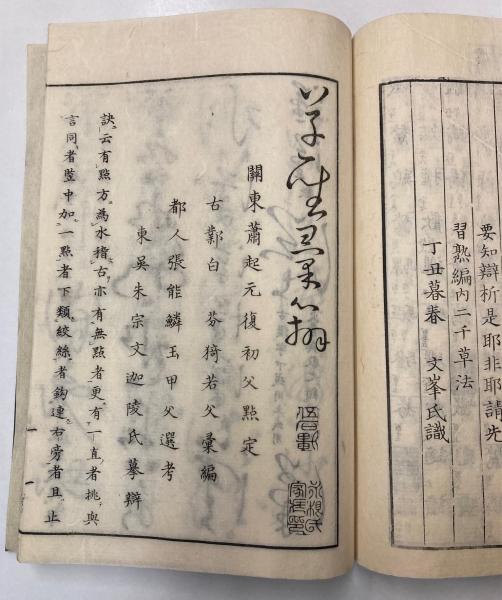 要知辯析是耶非耶請先
習熟編內二千草法
丁丑暮春 文峯氏識
草聖彙辯
關東蕭起元復初父點定
古鄴白 芬猗若父彙編
都人張能鱗玉甲父選考
東吳朱宗文迦陵氏摹辯
訣云有點方為水稽古亦有無點者更有一直者挑與
言同者豎中加一點者下類絞絲者鈎連右旁者且止